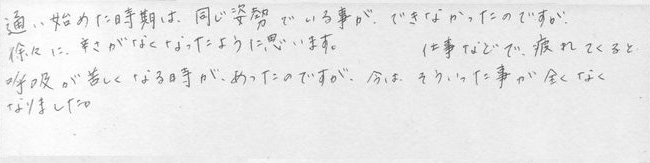 通い始めた時期は、同じ姿勢でいる事が、できなかったのですが、
徐々に、辛さがなくなったように思います。 仕事などで、疲れてくると
呼吸が苦しくなる時が、あったのですが、今は、そういった事が全くなく
なりました。